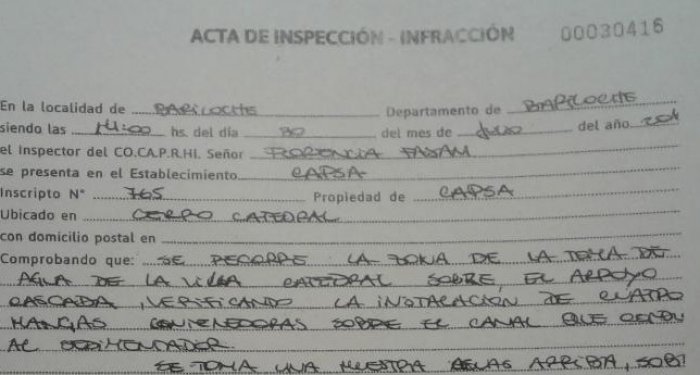 ACTA DE INSPECCIÓN - INFRACCIÓN 00030416
En la localidad de BARILOCHE Departamento de BARILOCHE
siendo las 14:00 hs. del día 30 del mes de Julio del año 201
el Inspector del CO.CA.P.R.HI. Señor FLORENCIA
se presenta en el Establecimiento CAPSA
Inscripto N° 765 Propiedad de CAPSA
Ubicado en CERRO CATEDRAL
con domicilio postal en
Comprobando que: SE RECORRE LA ZONA DE LA TOMA DE
AGUA DE LA VILLA CATEDRAL SOBRE EL ARROYO
CASCADA, VERIFICANDO LA INSTALACION DE CUATRO
MANGAS CONTENEDORAS SOBRE EL CANAL QUE
AL SEDIMENTADOR.
SE TOMA UNA MUESTRA AGUAS ARRIBA, SOB